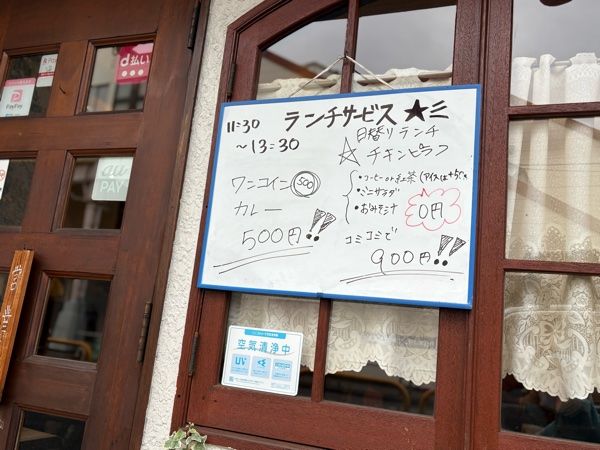 ランチサービス★
11:30
～13:30
ワンコイン 500
カレー
500円!!
日替りランチ
☆チキンピラフ
・コーヒー or 紅茶
・ミニサラダ
・おみそ汁
0円
コミコミで
900円!!
d払い
PayPay
au
PAY
空気清浄中
UV
営業